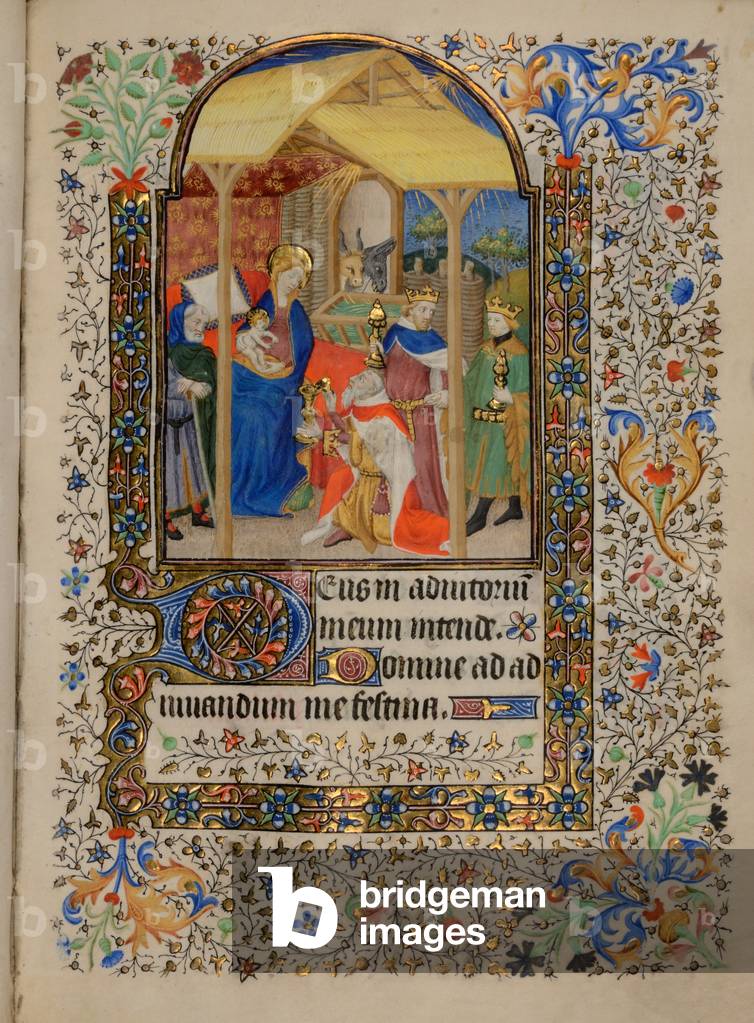 Deus in adiutoriū
meum intende.
Domine ad ad
iuuandum me festina.
bridgeman
images